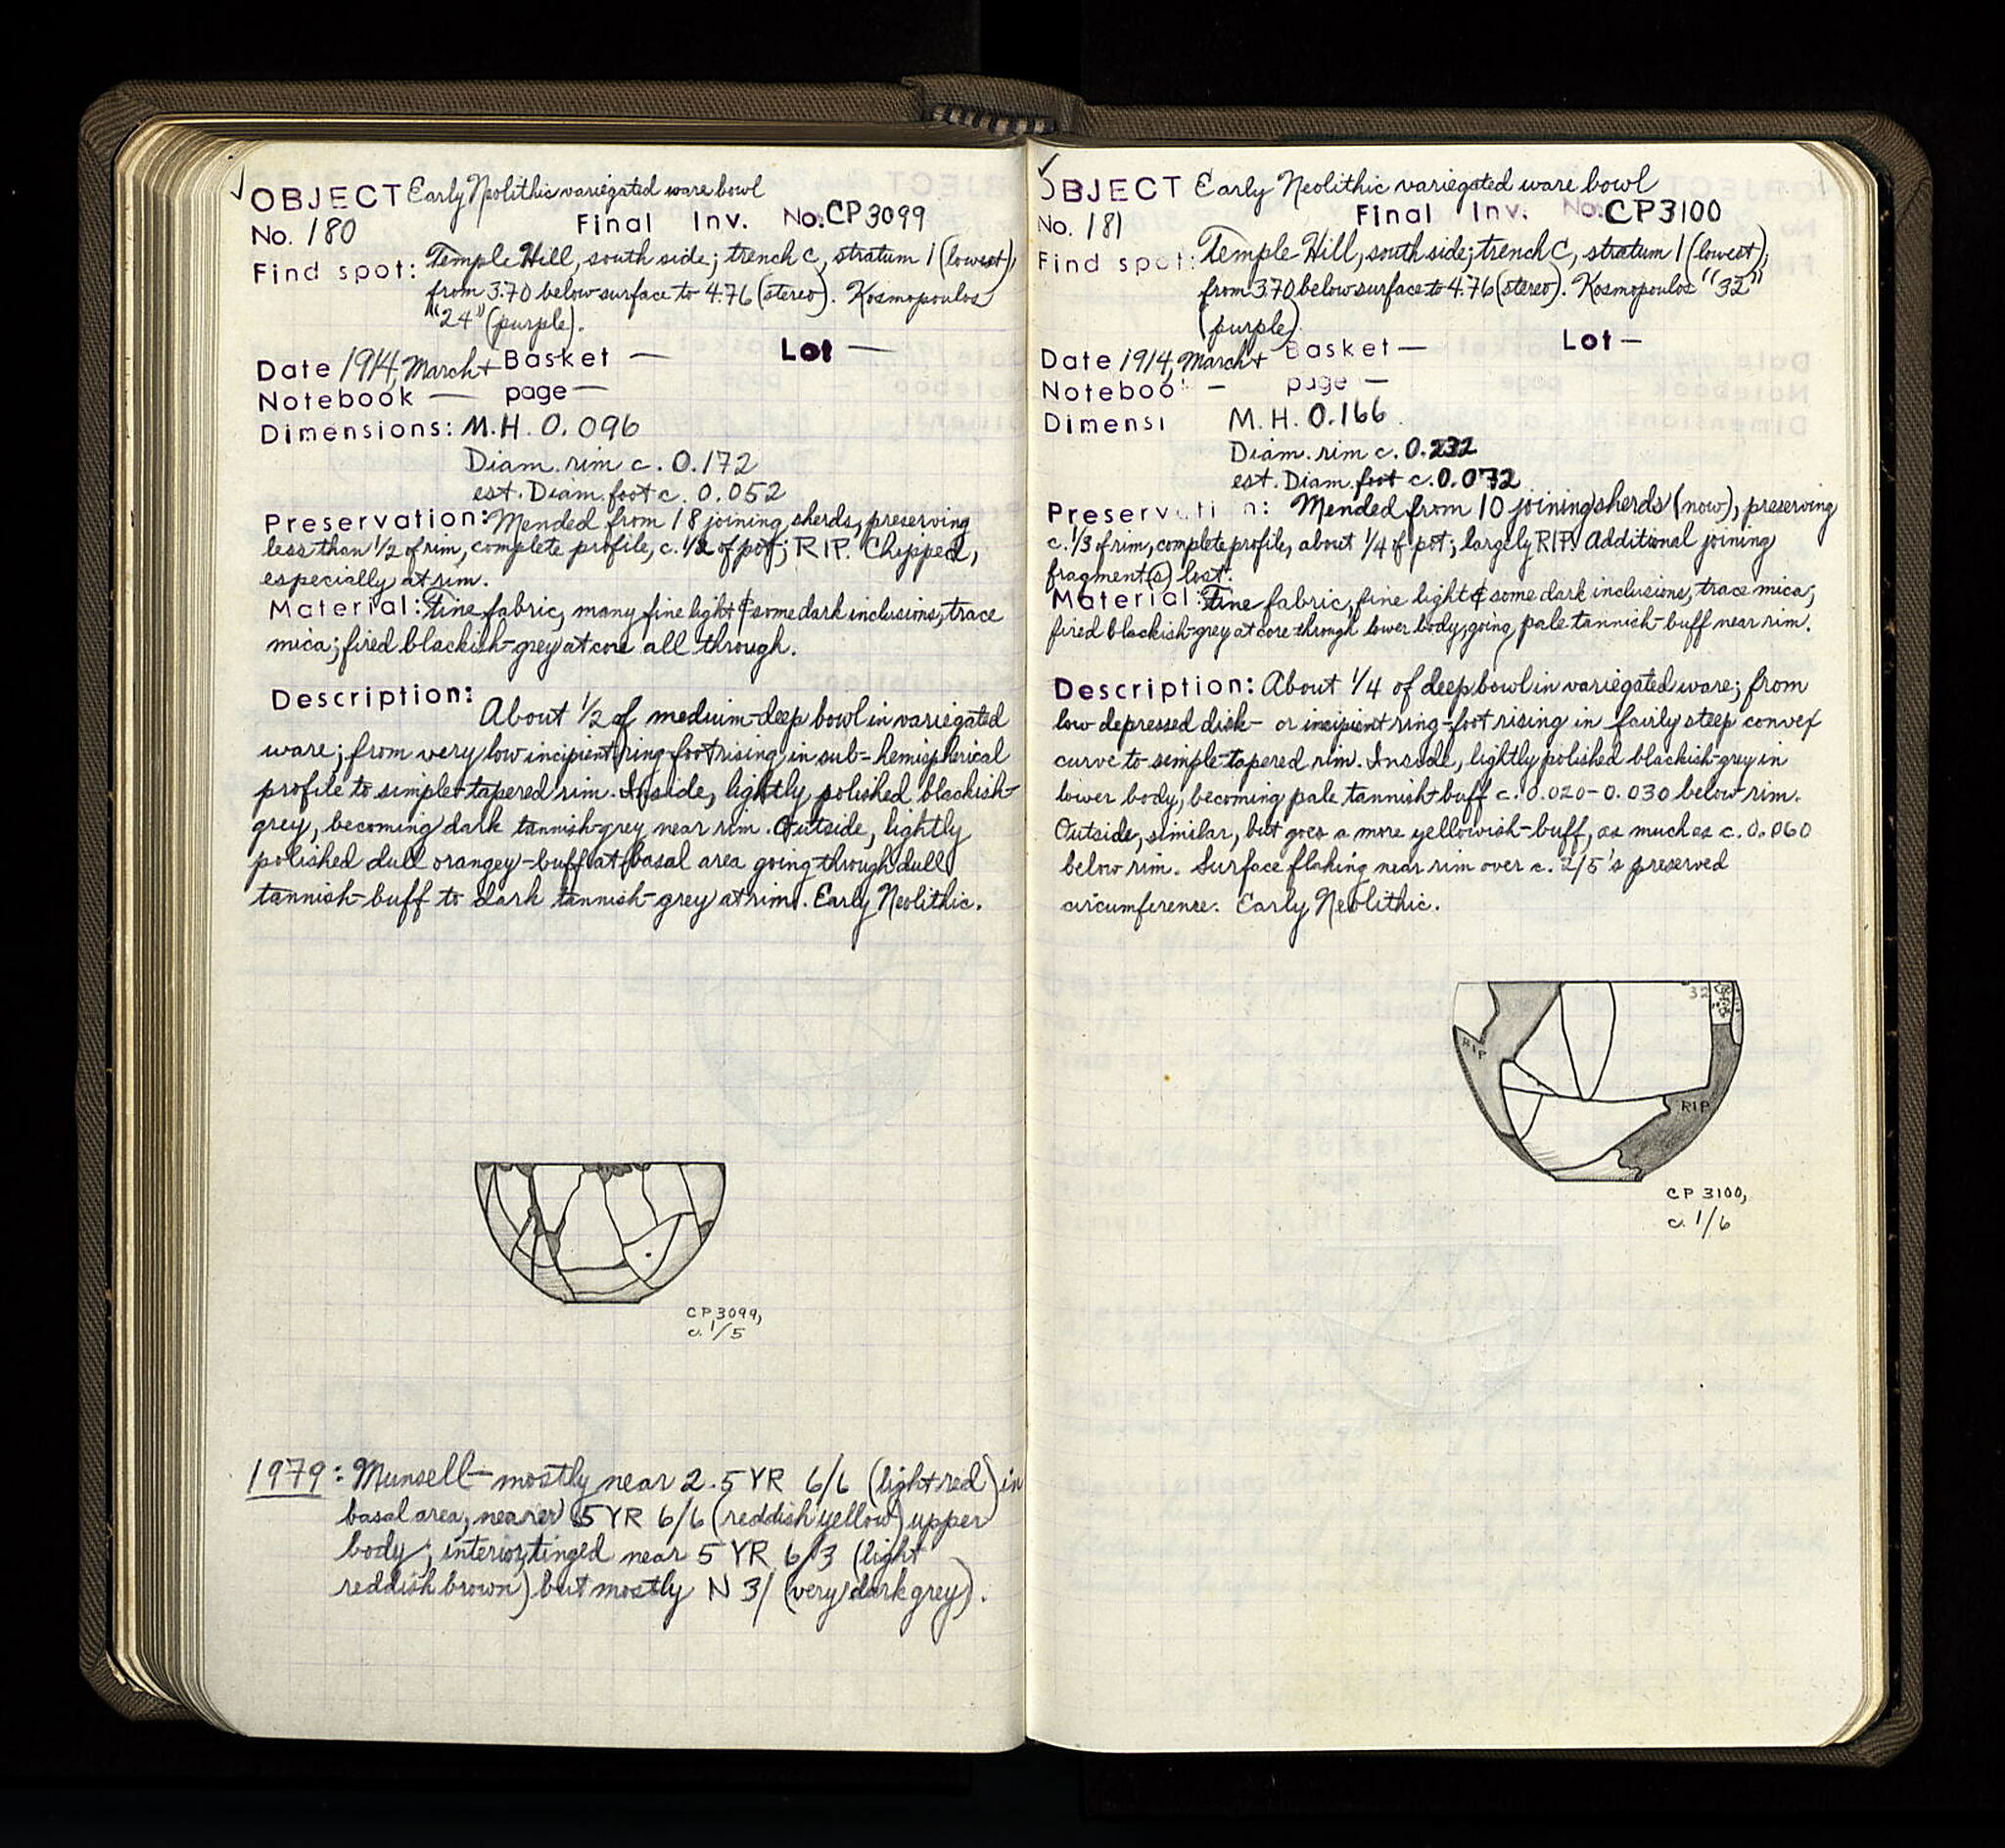 ✓ OBJECT Early Neolithic variegated ware bowl
No. 180 Final Inv. No. CP 3099
Find spot: Temple Hill, south side; trench C, stratum 1 (lowest),
from 3.70 below surface to 4.76 (stereo). Kosmopoulos
"24" (purple).
Date 1914, March+ Basket — Lot —
Notebook — page —
Dimensions: M.H. 0.096
Diam. rim c. 0.172
est. Diam. foot c. 0.052
Preservation: Mended from 18 joining sherds, preserving
less than 1/2 of rim, complete profile, c. 1/2 of pot; RIP. Chipped,
especially at rim.
Material: Fine fabric, many fine light & some dark inclusions, trace
mica; fired blackish-grey at core all through.
Description: About 1/2 of medium-deep bowl in variegated
ware; from very low incipient ring-foot rising in sub-hemispherical
profile to simple tapered rim. Inside, lightly polished blackish-
grey, becoming dark tannish-grey near rim. Outside, lightly
polished dull orangey-buff at basal area going through dull
tannish-buff to dark tannish-grey at rim. Early Neolithic.
CP 3099,
c. 1/5
1979: Munsell — mostly near 2.5 YR 6/6 (light red) in
basal area, nearer 5 YR 6/6 (reddish yellow) upper
body; interior tinged near 5 YR 6/3 (light
reddish brown) but mostly N 3/ (very dark grey).
✓ OBJECT Early Neolithic variegated ware bowl
No. 181 Final Inv. No. CP 3100
Find spot: Temple Hill, south side; trench C, stratum 1 (lowest),
from 3.70 below surface to 4.76 (stereo). Kosmopoulos "32"
(purple)
Date 1914, March+ Basket — Lot —
Noteboo — page —
Dimensi M.H. 0.166
Diam. rim c. 0.232
est. Diam. foot c. 0.072
Preservati n: Mended from 10 joining sherds (now), preserving
c. 1/3 of rim, complete profile, about 1/4 of pot; largely RIP. Additional joining
fragment(s) lost.
Material: Fine fabric, fine light & some dark inclusions, trace mica;
fired blackish-grey at core through lower body, going pale tannish-buff near rim.
Description: About 1/4 of deep bowl in variegated ware; from
low depressed disk- or incipient ring-foot rising in fairly steep convex
curve to simple tapered rim. Inside, lightly polished blackish-grey in
lower body, becoming pale tannish-buff c. 0.020-0.030 below rim.
Outside, similar, but goes a more yellowish-buff, as much as c. 0.060
below rim. Surface flaking near rim over c. 2/5's preserved
circumference. Early Neolithic.
32
RIP
RIP
CP 3100,
c. 1/6